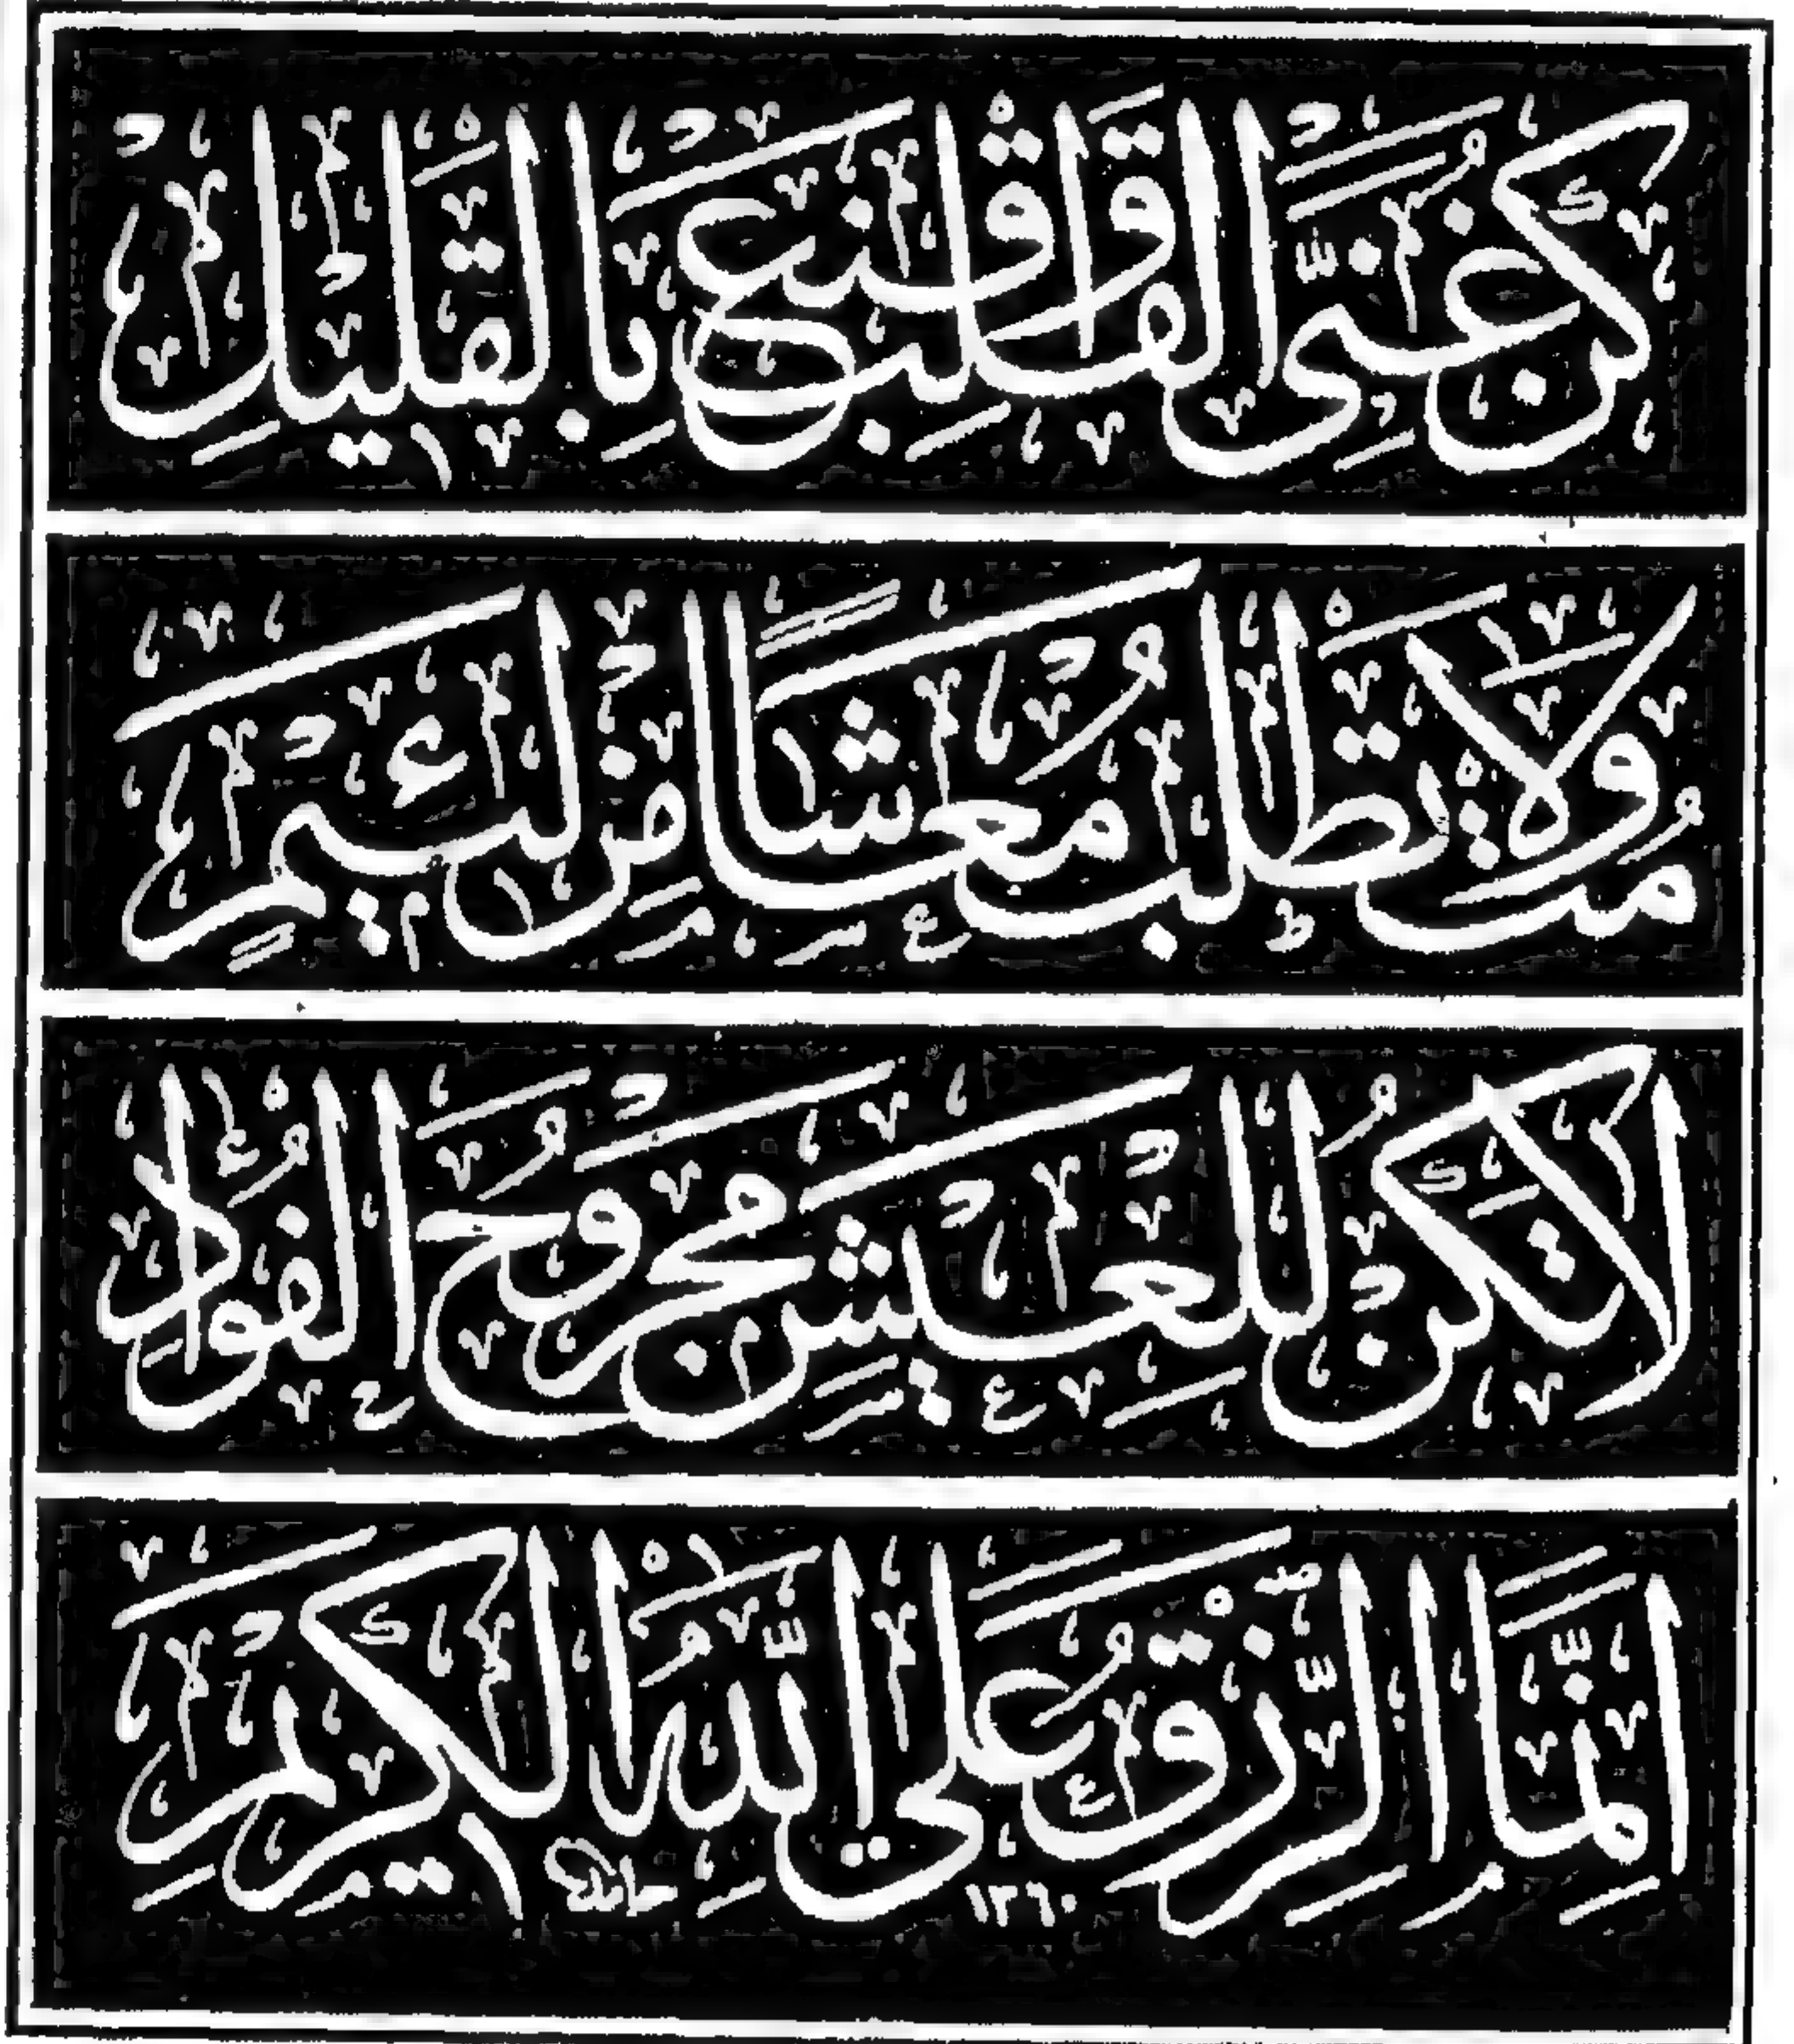 كُنْ غَنِيَّ الْقَلْبِ وَاقْنَعْ بِالْقَلِيلِ
مُتْ وَلَا تَطْلُبْ مَعَاشًا مِنْ لَئِيمٍ
لَا تَكُنْ لِلْعَيْشِ مَجْرُوحَ الْفُؤَادِ
إِنَّمَا الرِّزْقُ عَلَى اللّٰهِ الْكَرِيمِ
حامد ١٣٦٠